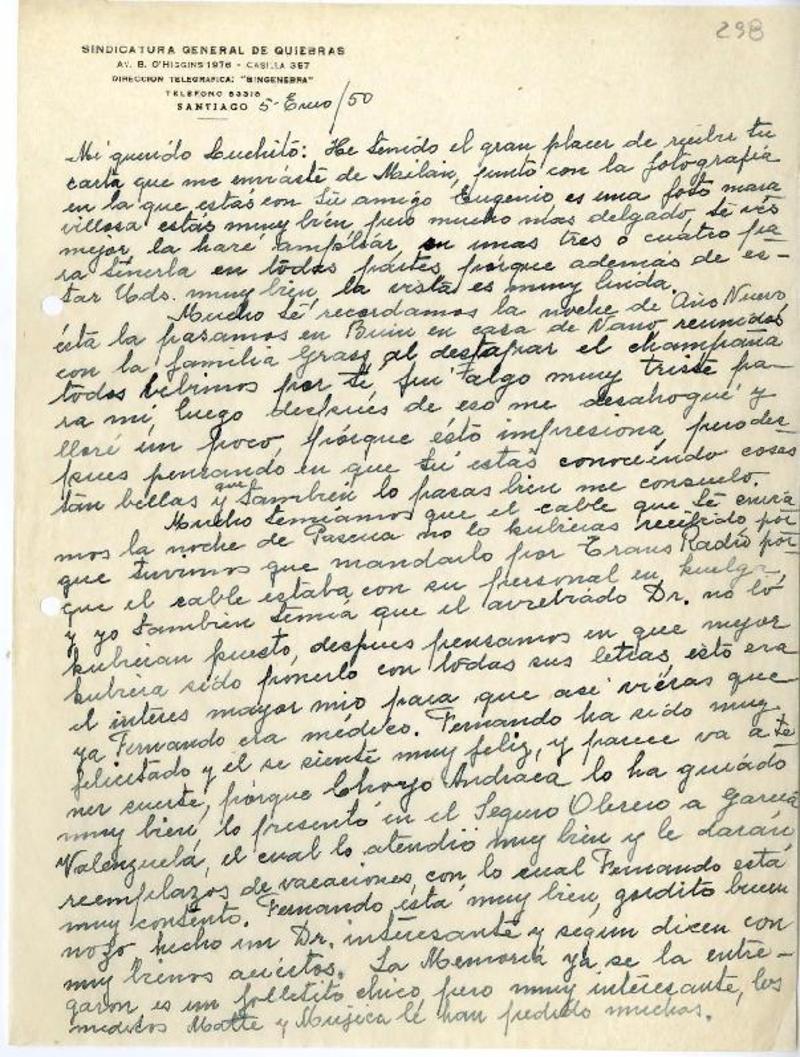 298
SINDICATURA GENERAL DE QUIEBRAS
AV. B. O'HIGGINS 1976 - CASILLA 367
DIRECCION TELEGRAFICA: "SINGENEBRA"
TELEFONO 83318
SANTIAGO 5-Enero/50
Mi querido Luchito: He tenido el gran placer de recibir tu
carta que me enviaste de Milan, junto con la fotografia
en la que estás con tu amigo Eugenio, es una foto mara
villosa estás muy bien pero mucho más delgado, te ves
mejor, la haré ampliar en unas tres o cuatro pa
ra tenerla en todas partes, porque además de es-
tar Uds. muy bien, la vista es muy linda.
Mucho te recordamos la noche de Año Nuevo,
ésta la pasamos en Buin en casa de Nano reunidos
con la familia Grass, al destapar el champaña
todos bebimos por ti, fué algo muy triste pa-
ra mi, luego después de eso me desahogué y
lloré un poco, porque ésto impresiona, pero des
pues pensando en que tú estás conociendo cosas
tan bellas y que tambien lo pasas bien me consuelo.
Mucho temiamos que el cable que te envia
mos la noche de Pascua no lo hubieras recibido por
que tuvimos que mandarlo por Trans Radio por-
que el cable estaba con su personal en huelga,
y yo tambien temia que el abrebiado Dr. no lo
hubieran puesto, despues pensamos en que mejor
hubiera sido ponerlo con todas sus letras, esto era
el interes mayor mio para que asi vieras que
ya Fernando era médico. Fernando ha sido muy
felicitado y el se siente muy feliz, y parece va a te
ner suerte, porque Choryo Andraca lo ha guiado
muy bien, lo presentó en el Seguro Obrero a Garcia
Valenzuela, el cual lo atendió muy bien y le darán
reemplazos de vacaciones, con lo cual Fernando está
muy contento. Fernando está muy bien, gordito buen
mozo hecho un Dr. interesante y segun dicen con
muy buenos aciertos. La Memoria ya se la entre-
garon es un folletito chico pero muy interesante, los
medicos Matte y Mujica le han pedido muchas.